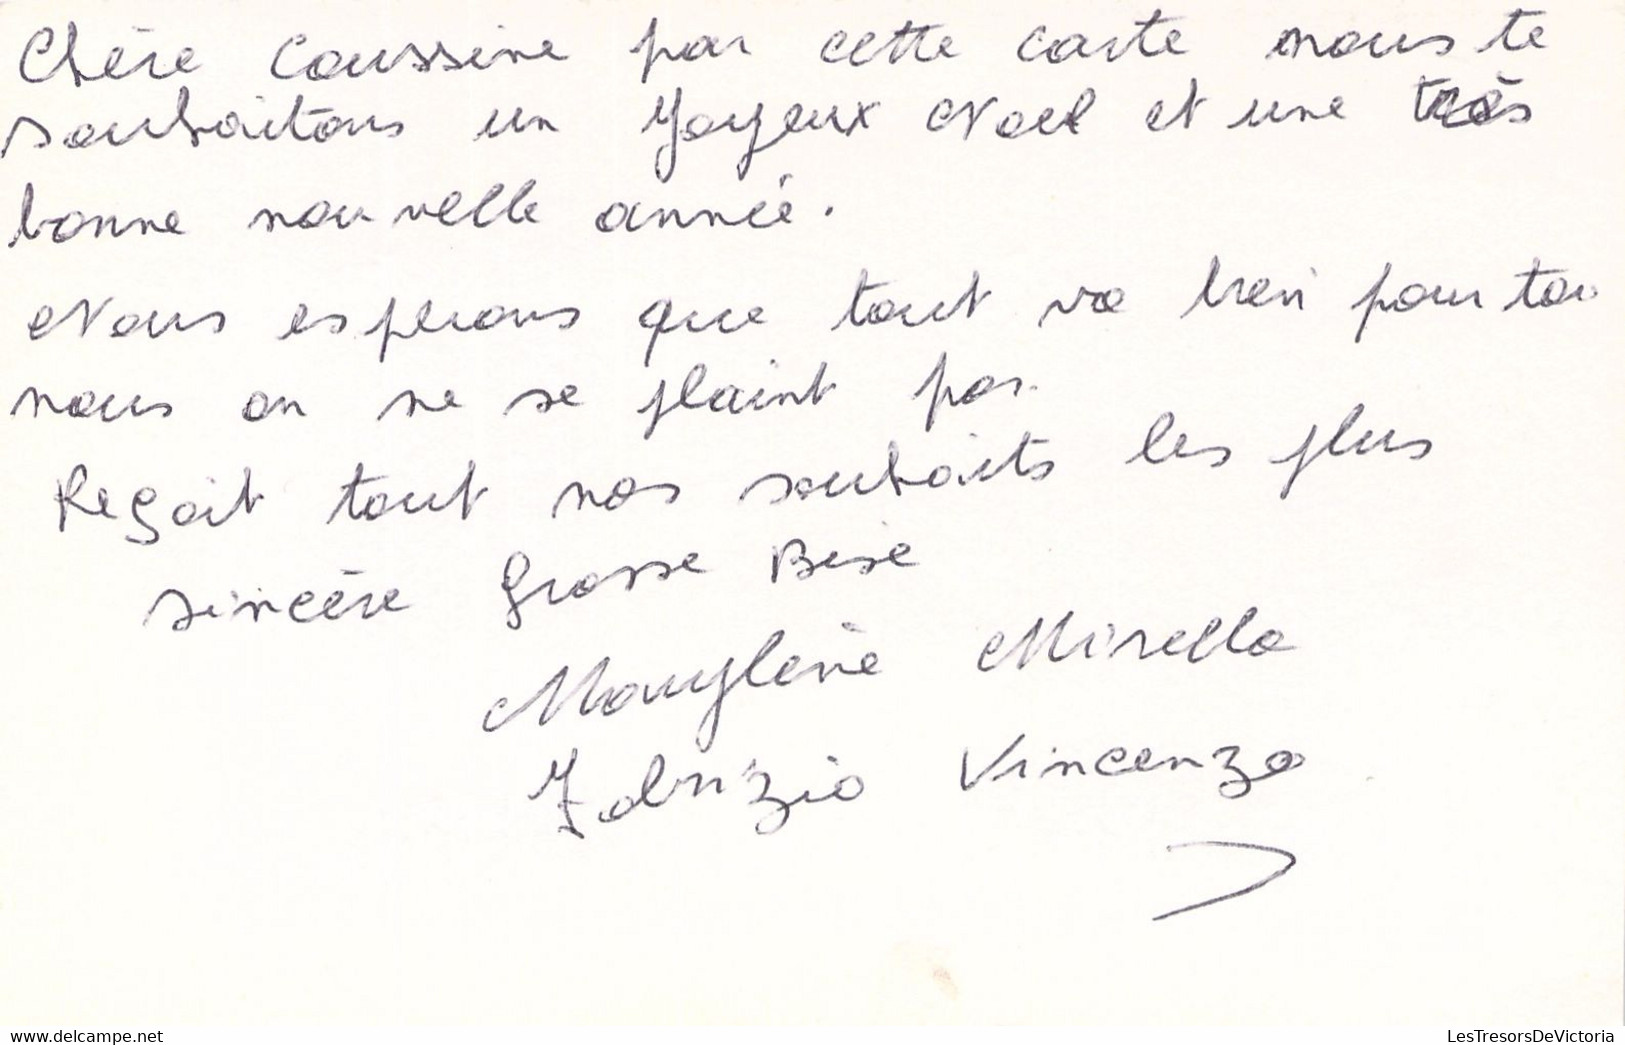 Chère Coussine par cette carte nous te
souhaitons un Joyeux Noel et une très
bonne nouvelle année.
Nous esperons que tout va bien pour toi
nous on ne se plaint pas.
Reçoit tout nos souhaits les plus
sincère Grosse Bise
Marylène Mirella
Fabrizio Vincenzo
LesTresorsDeVictoria